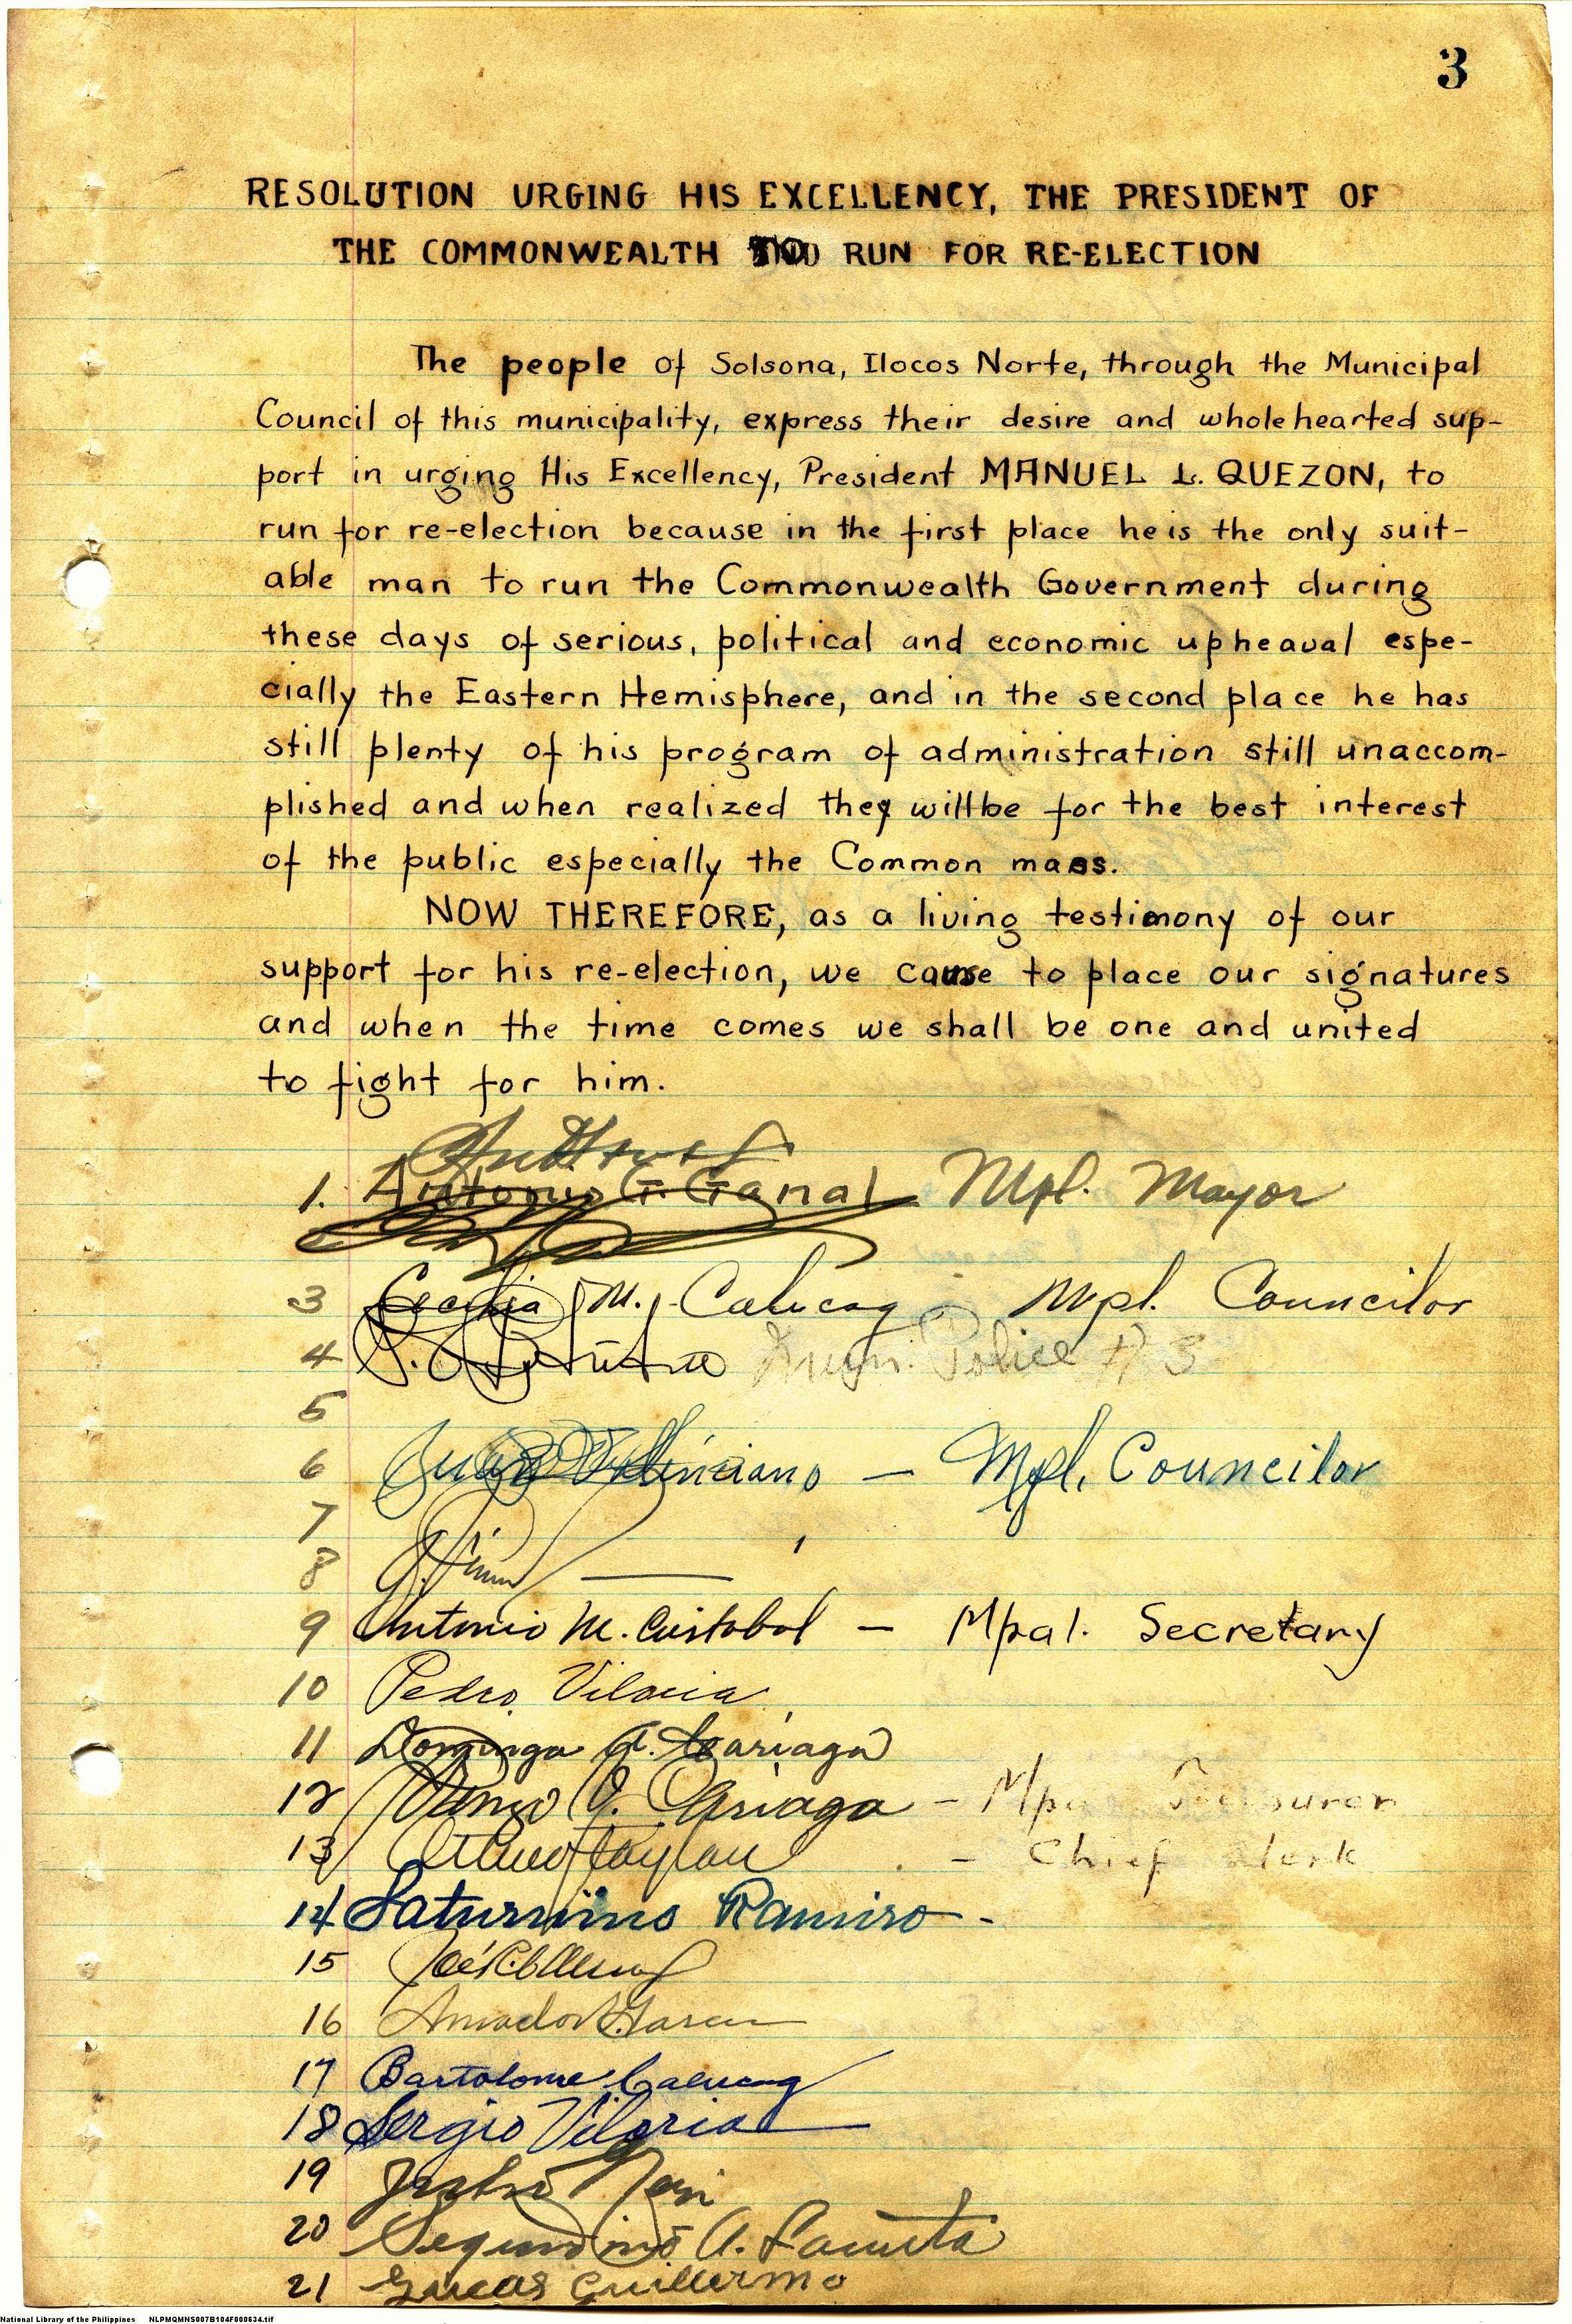 3
RESOLUTION URGING HIS EXCELLENCY, THE PRESIDENT OF
THE COMMONWEALTH TO RUN FOR RE-ELECTION
The people of Solsona, Ilocos Norte, through the Municipal
Council of this municipality, express their desire and wholehearted sup-
port in urging His Excellency, President MANUEL L. QUEZON, to
run for re-election because in the first place he is the only suit-
able man to run the Commonwealth Government during
these days of serious, political and economic upheaval espe-
cially the Eastern Hemisphere, and in the second place he has
still plenty of his program of administration still unaccom-
plished and when realized they will be for the best interest
of the public especially the Common mass.
NOW THEREFORE, as a living testimony of our
support for his re-election, we cause to place our signatures
and when the time comes we shall be one and united
to fight for him.
1. Antonio G. Ganal Mpl. Mayor
3 Cecilia M. Calucag Mpl. Councilor
4 Mun. Police # 3
5
6 Juan Feliciano — Mpl. Councilor
7
8
9 Antonio M. Cristobal — Mpal. Secretary
10 Pedro Viloria
11 Dominga A. Madariaga
12 - Mpal Treasurer
13 - Chief Clerk
14 Saturnino Ramiro -
15
16 Amador
17 Bartolome Calucag
18 Sergio Viloria
19
20 Segundino A.
21 Lucas Guillermo
National Library of the Philippines NLPMQMNS007B104F000634.tif